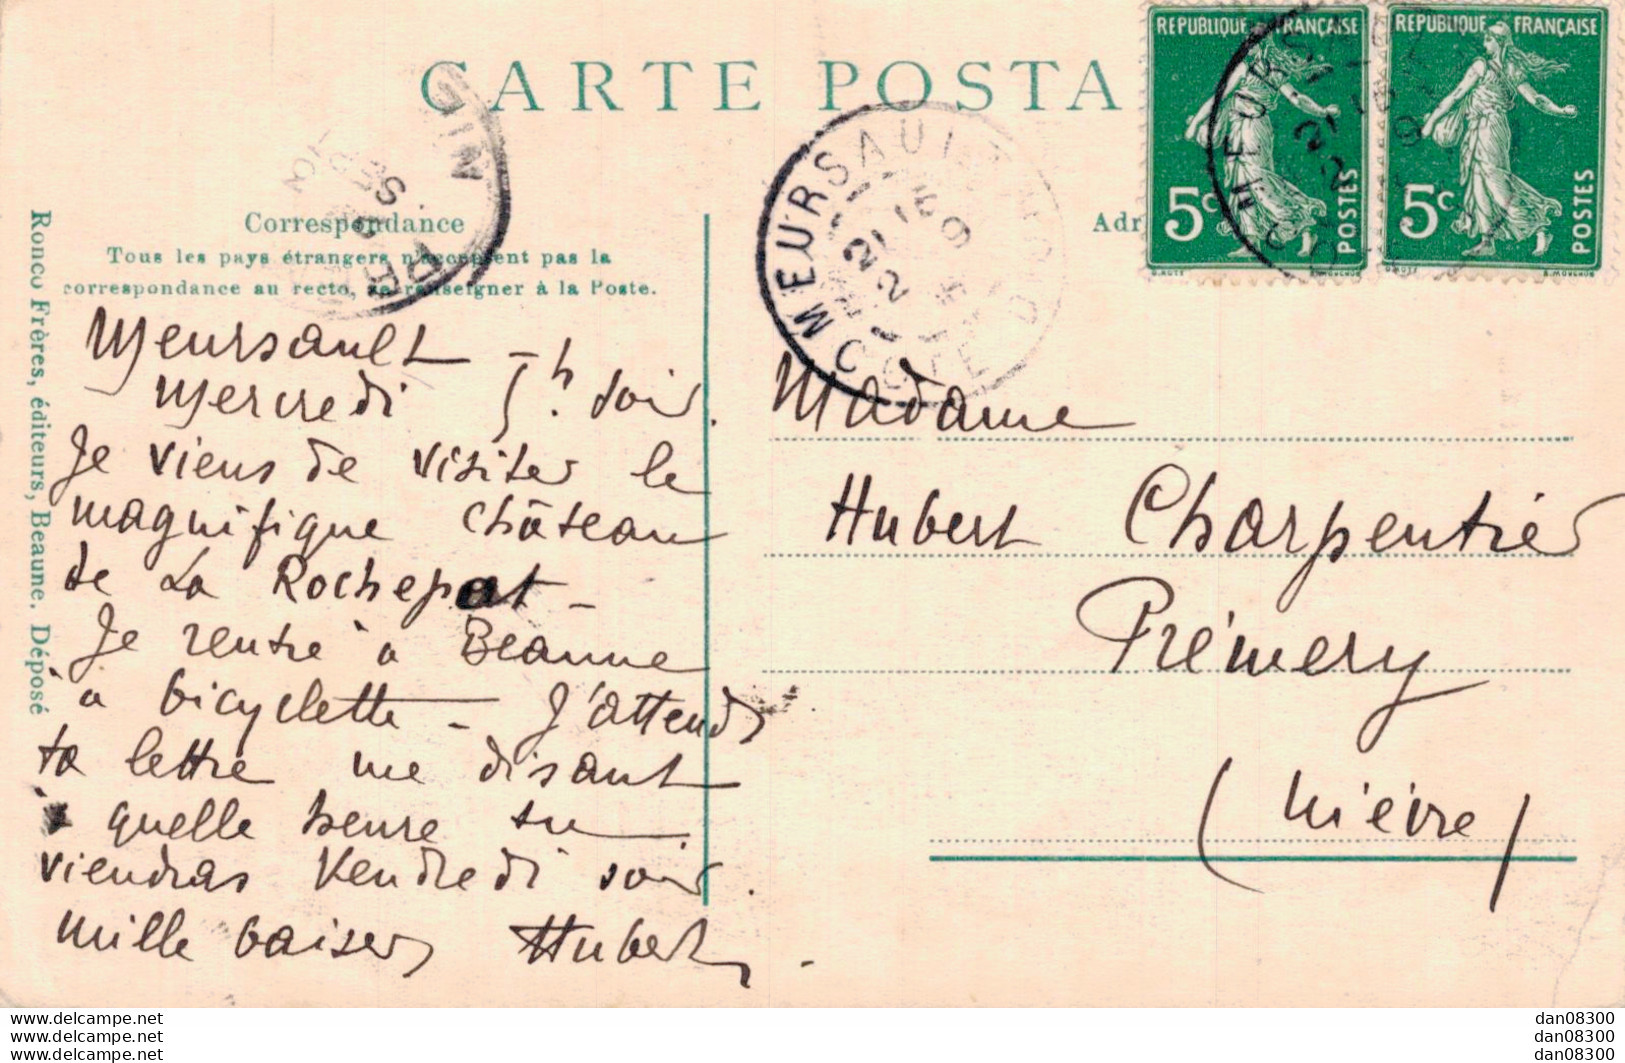 CARTE POSTA
REPUBLIQUE FRANÇAISE
5c POSTES
REPUBLIQUE FRANÇAISE
5c POSTES
MEURSAULT
COTE D'OR
MEURSAULT
Correspondance
Adr
Tous les pays étrangers n'acceptent pas la
correspondance au recto, se renseigner à la Poste.
Ronco Frères, éditeurs, Beaune. Déposé
Meursault
Mercredi 5h. soir.
Je viens de visiter le
magnifique château
de La Rochepot -
Je rentre à Beaune
à bicyclette - J'attends
ta lettre me disant
à quelle heure tu
viendras Vendredi soir.
Mille baisers Hubert.
Madame
Hubert Charpentier
Prémery
(Nièvre)
www.delcampe.net
www.delcampe.net
www.delcampe.net
dan08300
dan08300
dan08300